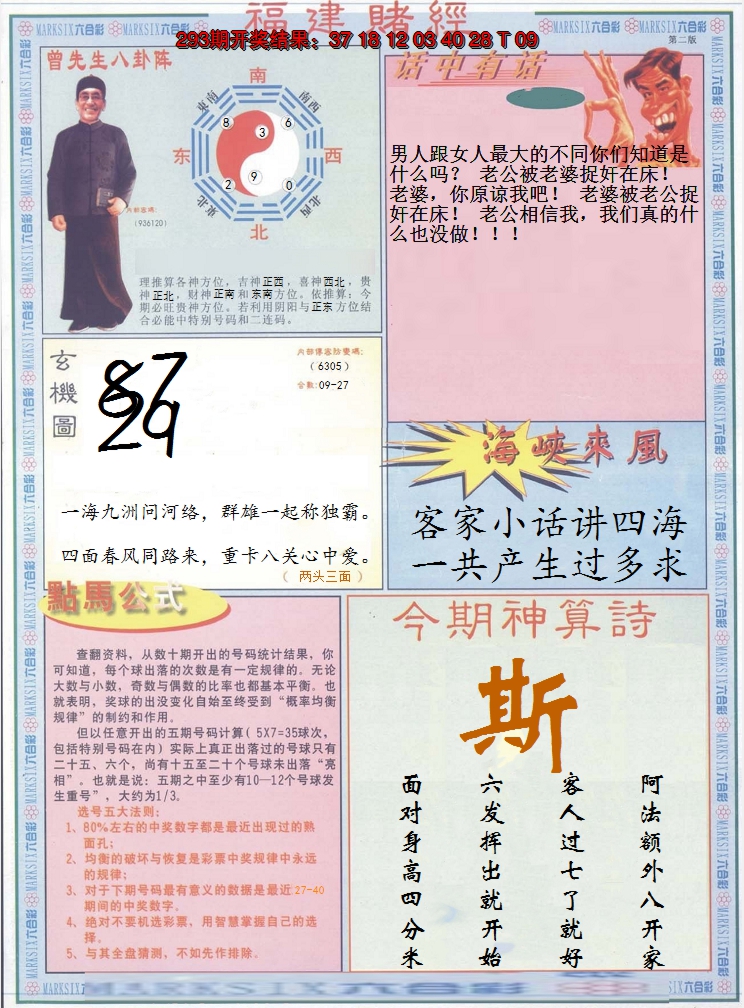 福建賭經
293期开奖结果：37 18 12 03 40 28 T 09
第二版
曾先生八卦阵
南
东南
南西
8 3 6
东
西
2 9 0
东北
北西
北
内部密碼：
（936120）
理推算各神方位，吉神正西，喜神西北，贵
神正北，财神正南和东南方位。依推算：今
期必旺贵神方位。若利用阴阳与正东方位结
合必能中特别号码和二连码。
话中有话
男人跟女人最大的不同你们知道是
什么吗？ 老公被老婆捉奸在床！
老婆，你原谅我吧！ 老婆被老公捉
奸在床！ 老公相信我，我们真的什
么也没做！！！
玄機圖
87
29
（6305）
合数:09-27
一海九洲问河络，群雄一起称独霸。
四面春风同路来，重卡八关心中爱。
（ 两头三面 ）
海峽來風
客家小话讲四海
一共产生过多求
點馬公式
查翻资料，从数十期开出的号码统计结果，你
可知道，每个球出落的次数是有一定规律的。无论
大数与小数，奇数与偶数的比率也都基本平衡。也
就表明，奖球的出没变化自始至终受到“概率均衡
规律”的制约和作用。
但以任意开出的五期号码计算( 5X7=35球次，
包括特别号码在内) 实际上真正出落过的号球只有
二十五、六个，尚有十五至二十个号球未出落“亮
相”。也就是说：五期之中至少有10—12个号球发
生重号”，大约为1/3。
选号五大法则：
1、80%左右的中奖数字都是最近出现过的熟
面孔；
2、均衡的破坏与恢复是彩票中奖规律中永远
的规律；
3、对于下期号码最有意义的数据是最近27-40
期间的中奖数字。
4、绝对不要机选彩票，用智慧掌握自己的选
择。
5、与其全盘猜测，不如先作排除。
今期神算詩
斯
阿法额外八开家
客人过七了就好
六发挥出就开始
面对身高四分米
MARKSIX六合彩